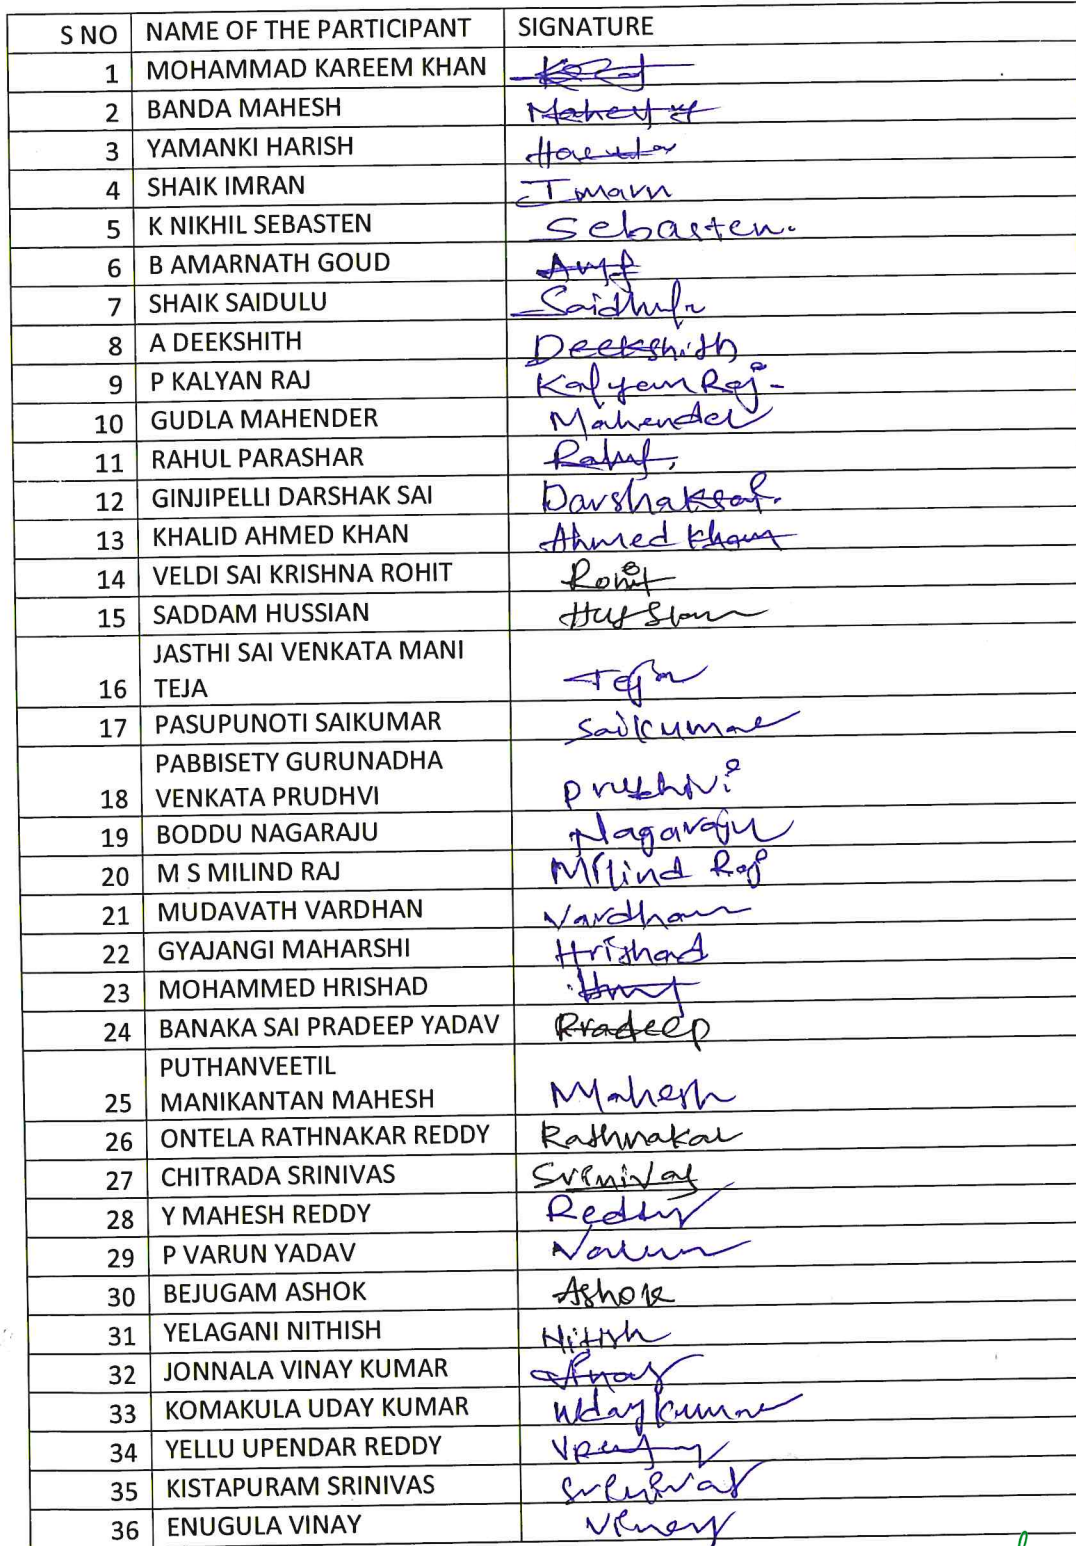 S NO NAME OF THE PARTICIPANT SIGNATURE
1 MOHAMMAD KAREEM KHAN
2 BANDA MAHESH
3 YAMANKI HARISH
4 SHAIK IMRAN Imarn
5 K NIKHIL SEBASTEN Sebasten.
6 B AMARNATH GOUD
7 SHAIK SAIDULU
8 A DEEKSHITH Deekshith
9 P KALYAN RAJ Kalyan Raj-
10 GUDLA MAHENDER Mahender
11 RAHUL PARASHAR
12 GINJIPELLI DARSHAK SAI Darshaksai.
13 KHALID AHMED KHAN Ahmed Khan
14 VELDI SAI KRISHNA ROHIT Rohit
15 SADDAM HUSSIAN
JASTHI SAI VENKATA MANI
16 TEJA Teja
17 PASUPUNOTI SAIKUMAR Saikumar
PABBISETY GURUNADHA
18 VENKATA PRUDHVI Prudhvi
19 BODDU NAGARAJU Nagaraju
20 M S MILIND RAJ Milind Raj
21 MUDAVATH VARDHAN Vardhan
22 GYAJANGI MAHARSHI Hrishad
23 MOHAMMED HRISHAD
24 BANAKA SAI PRADEEP YADAV Pradeep
PUTHANVEETIL
25 MANIKANTAN MAHESH Mahesh
26 ONTELA RATHNAKAR REDDY Rathnakar
27 CHITRADA SRINIVAS Srinivas
28 Y MAHESH REDDY Reddy
29 P VARUN YADAV Varun
30 BEJUGAM ASHOK Ashok
31 YELAGANI NITHISH Nitish
32 JONNALA VINAY KUMAR
33 KOMAKULA UDAY KUMAR Uday Kumar
34 YELLU UPENDAR REDDY
35 KISTAPURAM SRINIVAS Srinivas
36 ENUGULA VINAY Vinay